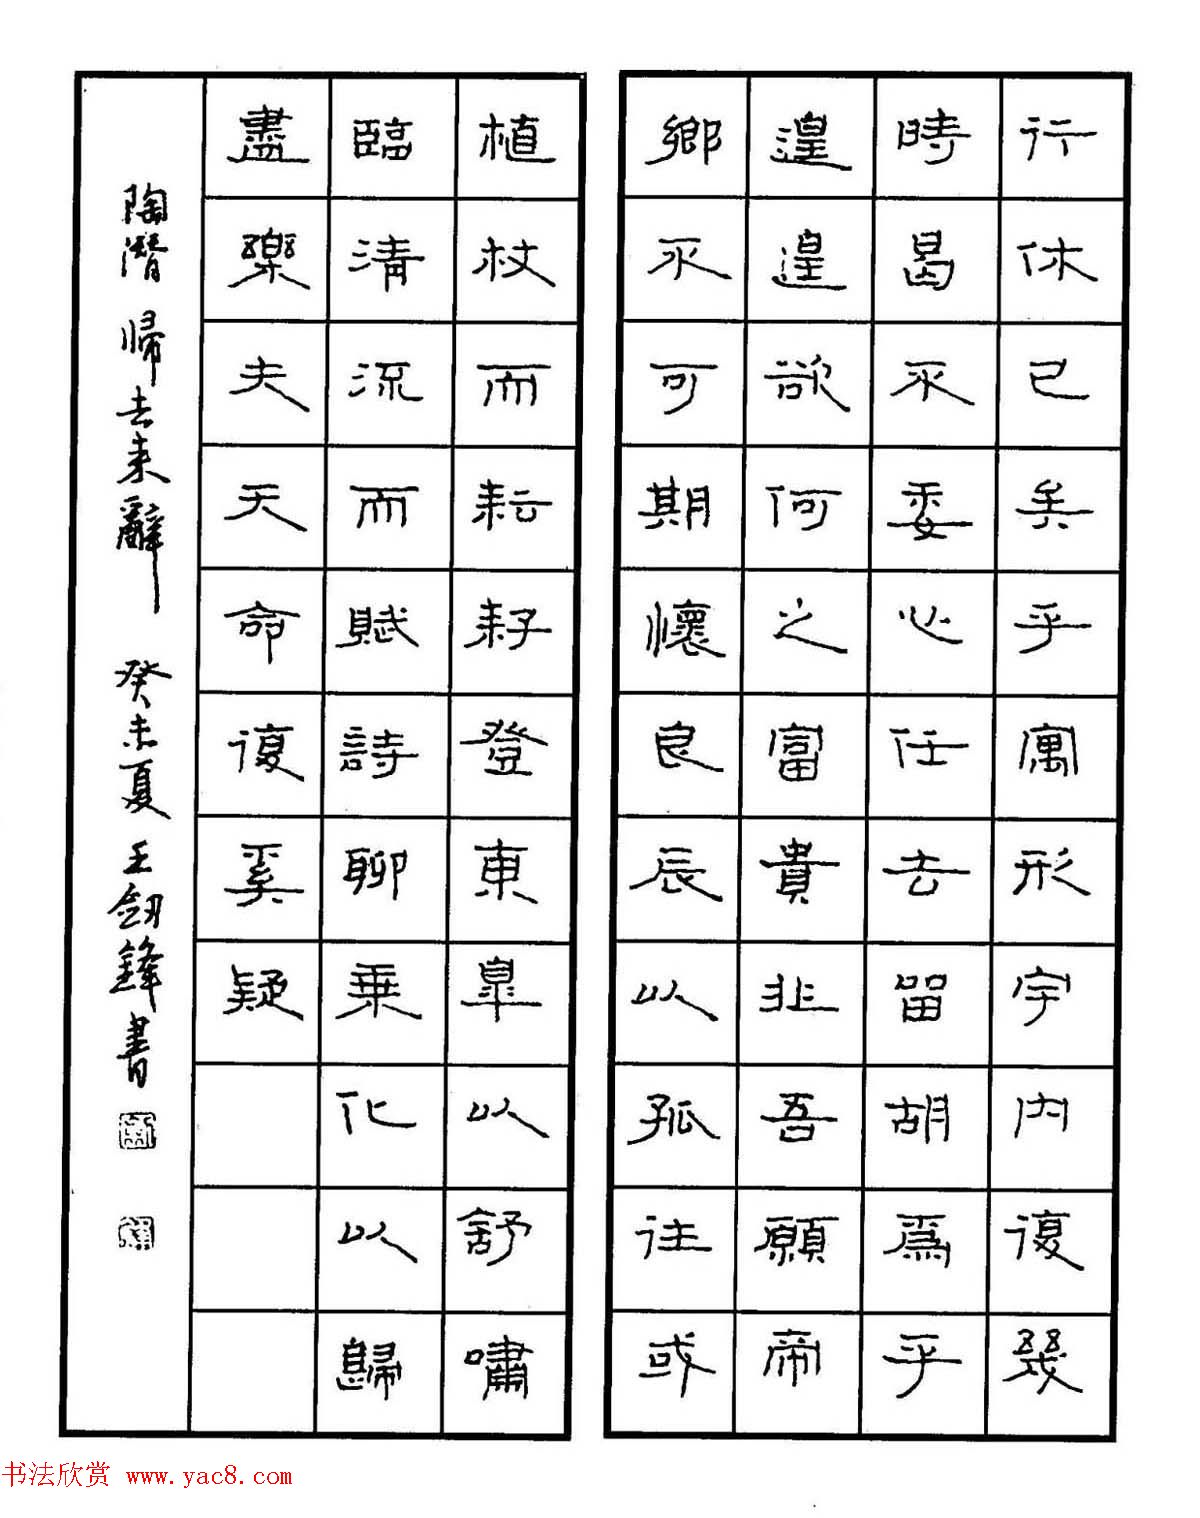 行休已矣乎寓形宇内復幾
時曷不委心任去留胡爲乎
遑遑欲何之富貴非吾願帝
鄉不可期懷良辰以孤往或
植杖而耘耔登東皋以舒嘯
臨清流而賦詩聊乘化以歸
盡樂夫天命復奚疑
陶潛 歸去来辭 癸未夏 王劍鋒書
书法欣赏 www.yac8.com